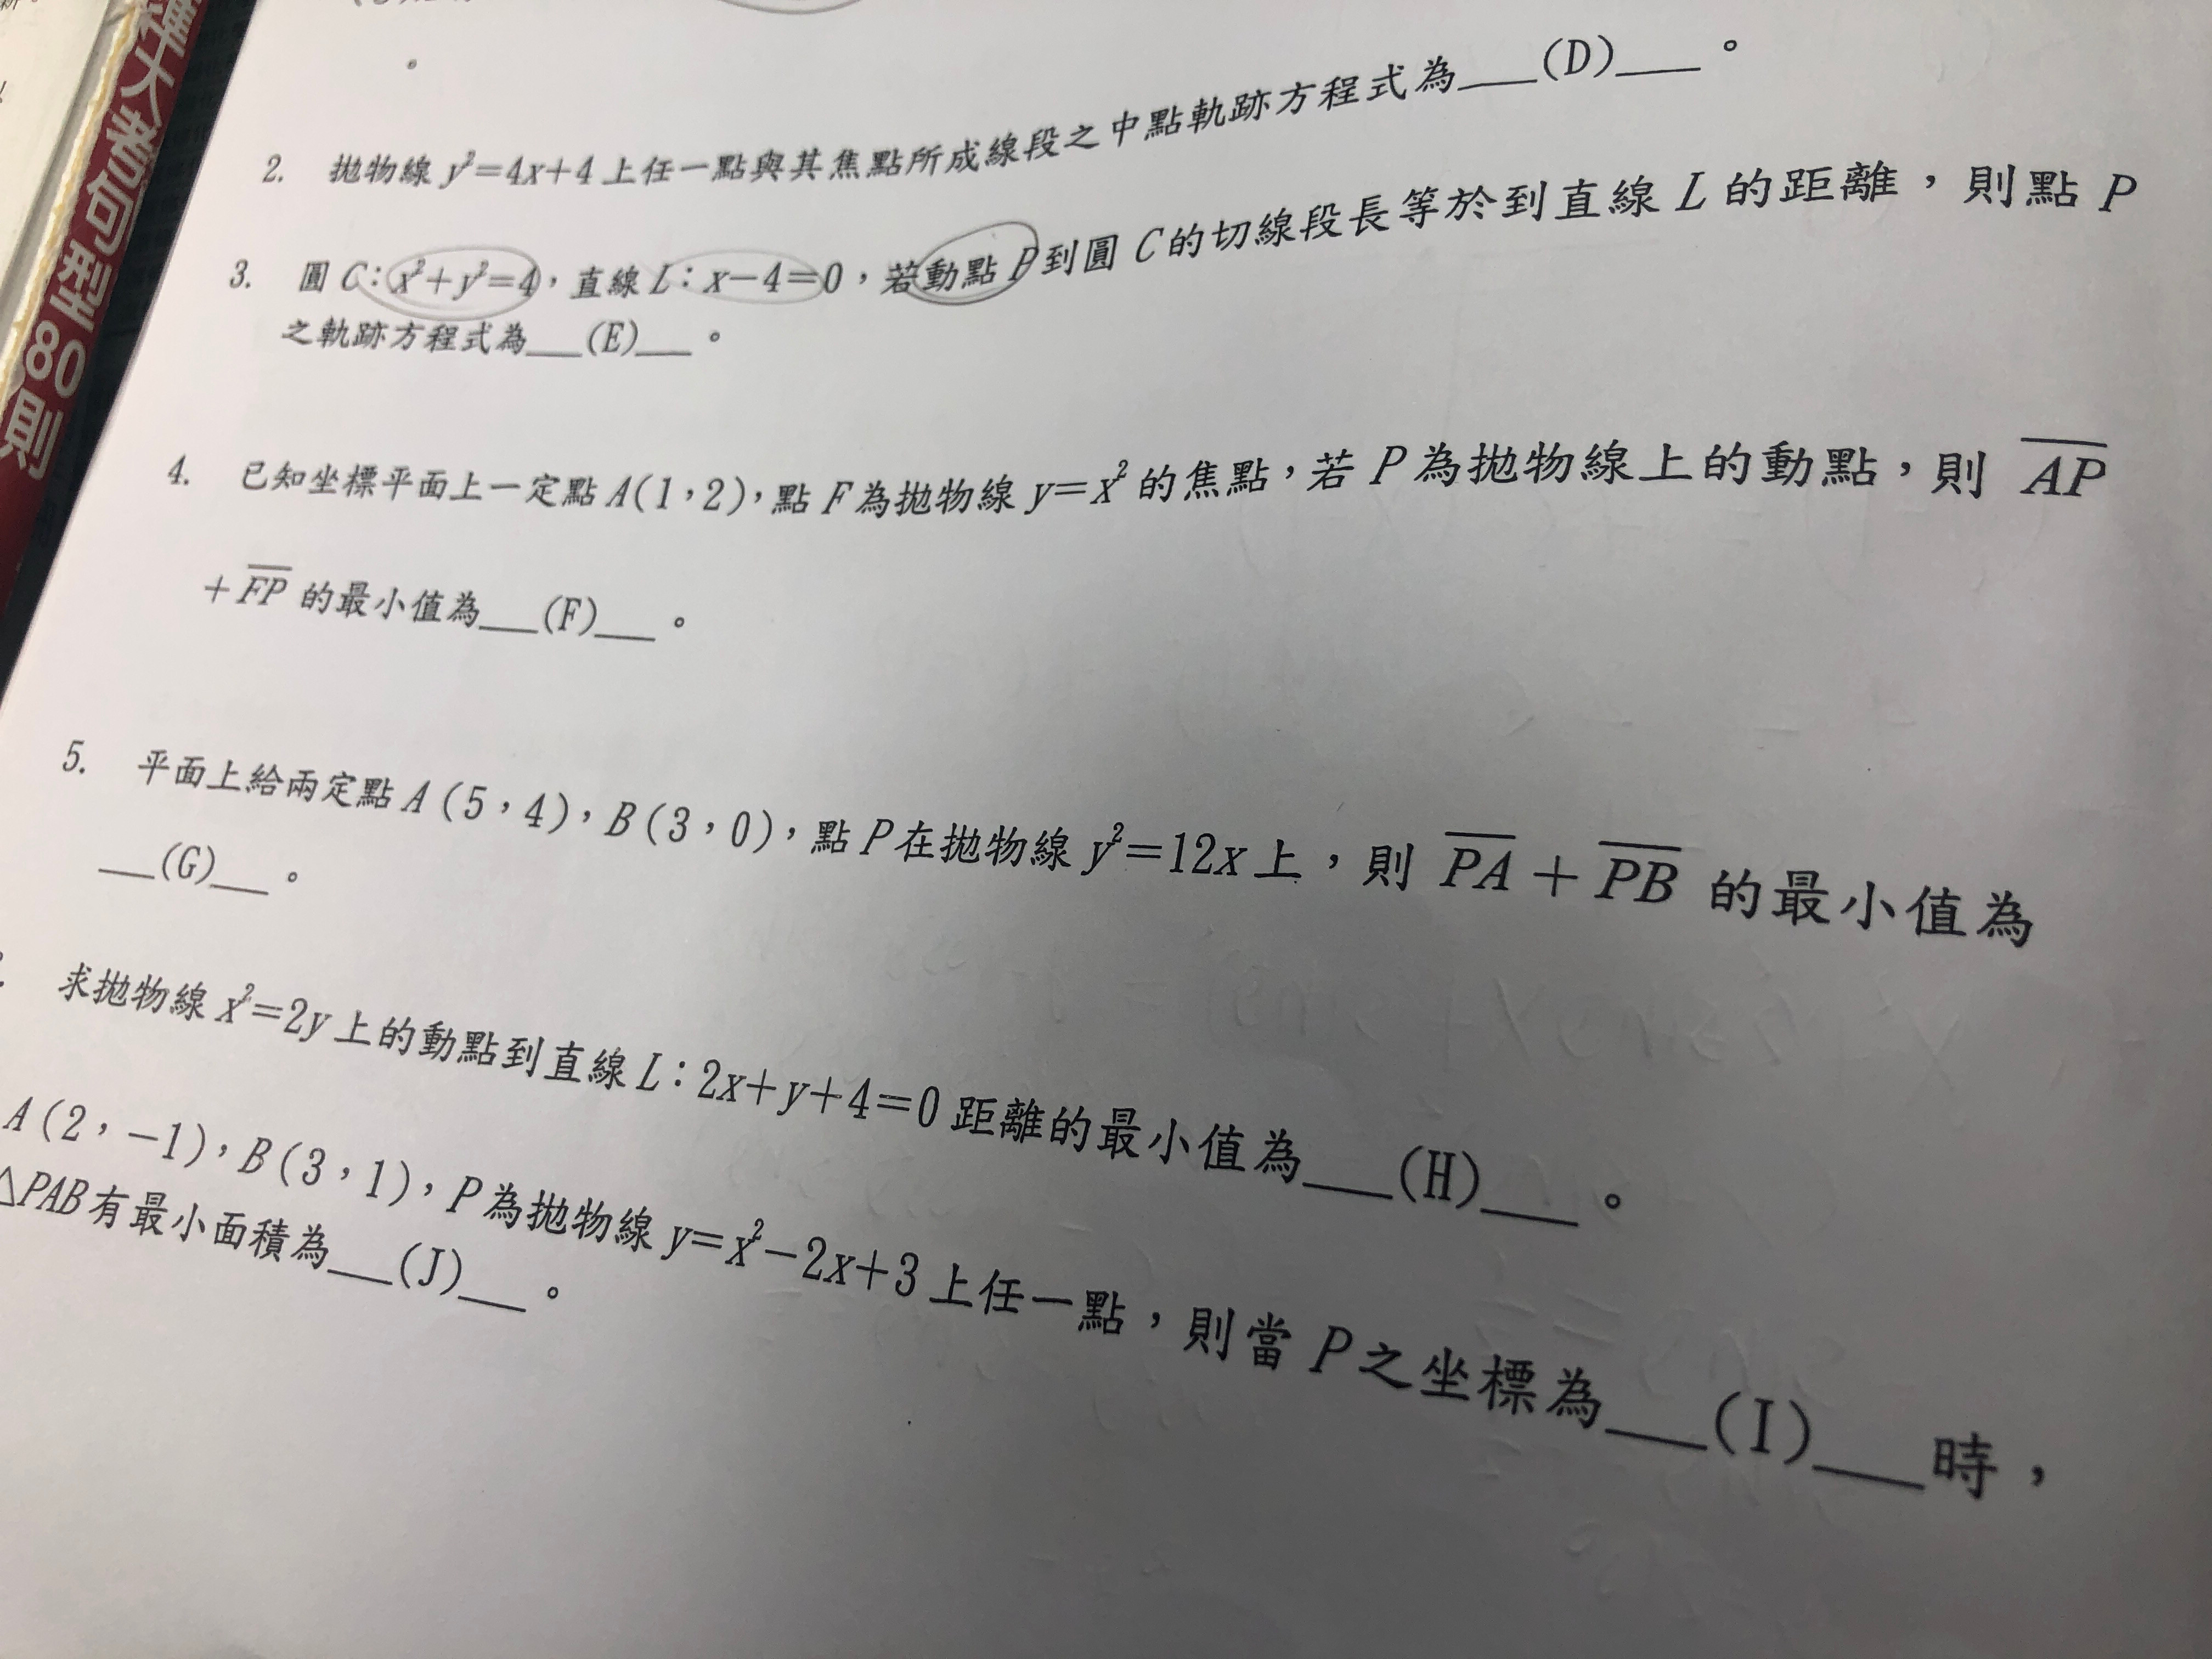 擇大考句型80則
。
2. 拋物線 y²=4x+4 上任一點與其焦點所成線段之中點軌跡方程式為___(D)___。
3. 圓 C:x²+y²=4,直線 L:x-4=0,若動點 P 到圓 C 的切線段長等於到直線 L 的距離,則點 P
之軌跡方程式為___(E)___。
4. 已知坐標平面上一定點 A(1,2),點 F 為拋物線 y=x² 的焦點,若 P 為拋物線上的動點,則 A̅P̅
+F̅P̅ 的最小值為___(F)___。
5. 平面上給兩定點 A(5,4),B(3,0),點 P 在拋物線 y²=12x 上,則 P̅A̅+P̅B̅ 的最小值為
___(G)___。
求拋物線 x²=2y 上的動點到直線 L:2x+y+4=0 距離的最小值為___(H)___。
A(2,-1),B(3,1),P 為拋物線 y=x²-2x+3 上任一點,則當 P 之坐標為___(I)___時,
△PAB 有最小面積為___(J)___。